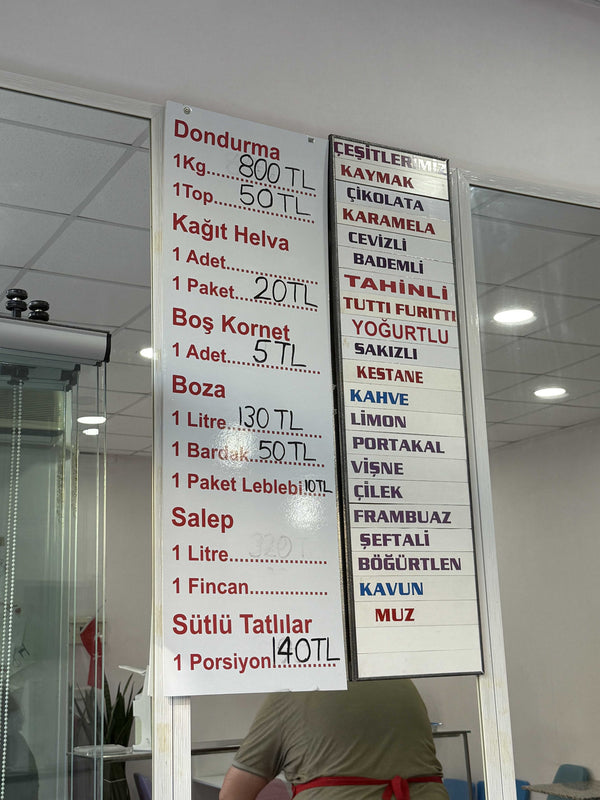 Dondurma
1Kg.... 800 TL
1Top.... 50 TL
Kağıt Helva
1 Adet....................
1 Paket.... 20TL
Boş Kornet
1 Adet.... 5 TL
Boza
1 Litre.... 130 TL
1 Bardak.. 50 TL
1 Paket Leblebi 10TL
Salep
1 Litre.... 320 T
1 Fincan.................
Sütlü Tatlılar
1 Porsiyon 140TL
ÇEŞİTLERİMİZ
KAYMAK
ÇİKOLATA
KARAMELA
CEVİZLİ
BADEMLİ
TAHİNLİ
TUTTI FURITTI
YOĞURTLU
SAKIZLI
KESTANE
KAHVE
LİMON
PORTAKAL
VİŞNE
ÇİLEK
FRAMBUAZ
ŞEFTALİ
BÖĞÜRTLEN
KAVUN
MUZ